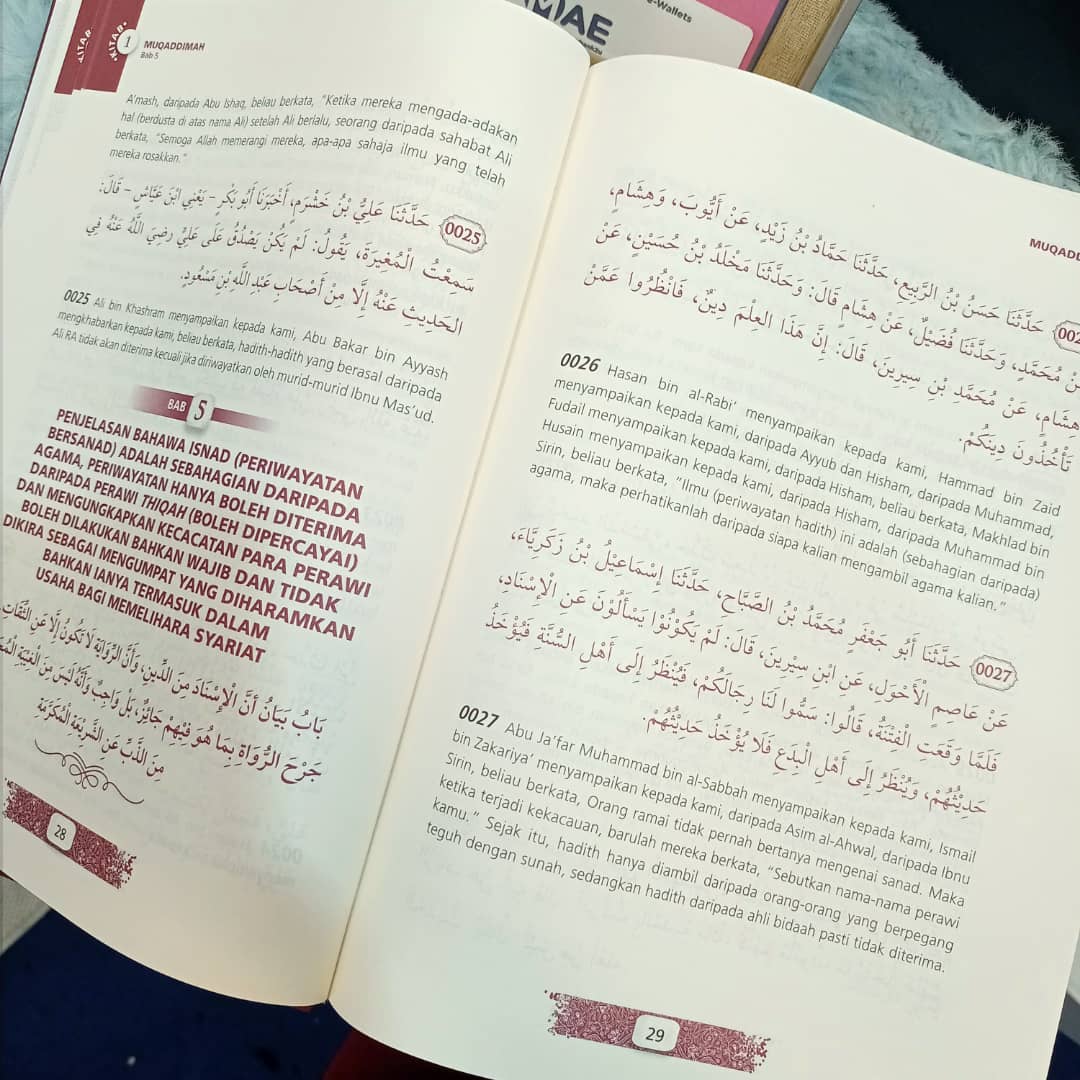 e-Wallets
MAE
KITAB
1
MUQADDIMAH
Bab 5
A'mash, daripada Abu Ishaq, beliau berkata, "Ketika mereka mengada-adakan
hal (berdusta di atas nama Ali) setelah Ali berlalu, seorang daripada sahabat Ali
berkata, "Semoga Allah memerangi mereka, apa-apa sahaja ilmu yang telah
mereka rosakkan."
0025 حَدَّثَنَا عَلِيُّ بْنُ خَشْرَمٍ، أَخْبَرَنَا أَبُو بَكْرٍ – يَعْنِي ابْنَ عَيَّاشٍ – قَالَ:
سَمِعْتُ الْمُغِيرَةَ، يَقُولُ: لَمْ يَكُنْ يَصْدُقُ عَلَى عَلِيٍّ رَضِيَ اللَّهُ عَنْهُ فِي
الْحَدِيثِ عَنْهُ إِلَّا مِنْ أَصْحَابِ عَبْدِ اللَّهِ بْنِ مَسْعُودٍ.
0025 Ali bin Khashram menyampaikan kepada kami, Abu Bakar bin Ayyash
mengkhabarkan kepada kami, beliau berkata, hadith-hadith yang berasal daripada
Ali RA tidak akan diterima kecuali jika diriwayatkan oleh murid-murid Ibnu Mas'ud.
BAB 5
PENJELASAN BAHAWA ISNAD (PERIWAYATAN
BERSANAD) ADALAH SEBAHAGIAN DARIPADA
AGAMA, PERIWAYATAN HANYA BOLEH DITERIMA
DARIPADA PERAWI THIQAH (BOLEH DIPERCAYAI)
DAN MENGUNGKAPKAN KECACATAN PARA PERAWI
BOLEH DILAKUKAN BAHKAN WAJIB DAN TIDAK
DIKIRA SEBAGAI MENGUMPAT YANG DIHARAMKAN
BAHKAN IANYA TERMASUK DALAM
USAHA BAGI MEMELIHARA SYARIAT
بَابُ بَيَانُ أَنَّ الْإِسْنَادَ مِنَ الدِّينِ، وَأَنَّ الرِّوَايَةَ لَا تَكُونُ إِلَّا عَنِ الثِّقَاتِ
جَرْحَ الرُّوَاةِ بِمَا هُوَ فِيهِمْ جَائِزٌ، بَلْ وَاجِبٌ وَأَنَّهُ لَيْسَ مِنَ الْغِيبَةِ
مِنَ الذَّبِّ عَنِ الشَّرِيعَةِ الْمُكَرَّمَةِ
28
حَدَّثَنَا حَسَنُ بْنُ الرَّبِيعِ، حَدَّثَنَا حَمَّادُ بْنُ زَيْدٍ، عَنْ أَيُّوبَ، وَهِشَامٍ،
مُحَمَّدٍ، وَحَدَّثَنَا فُضَيْلٌ، عَنْ هِشَامٍ قَالَ: وَحَدَّثَنَا مَخْلَدُ بْنُ حُسَيْنٍ، عَنْ
هِشَامٍ، عَنْ مُحَمَّدِ بْنِ سِيرِينَ، قَالَ: إِنَّ هَذَا الْعِلْمَ دِينٌ، فَانْظُرُوا عَمَّنْ
تَأْخُذُونَ دِينَكُمْ.
0026 Hasan bin al-Rabi' menyampaikan kepada kami, Hammad bin Zaid
menyampaikan kepada kami, daripada Ayyub dan Hisham, daripada Muhammad,
Fudail menyampaikan kepada kami, daripada Hisham, beliau berkata, Makhlad bin
Husain menyampaikan kepada kami, daripada Hisham, daripada Muhammad bin
Sirin, beliau berkata, "Ilmu (periwayatan hadith) ini adalah (sebahagian daripada)
agama, maka perhatikanlah daripada siapa kalian mengambil agama kalian."
0027 حَدَّثَنَا أَبُو جَعْفَرٍ مُحَمَّدُ بْنُ الصَّبَّاحِ، حَدَّثَنَا إِسْمَاعِيلُ بْنُ زَكَرِيَّاءَ،
عَنْ عَاصِمٍ الْأَحْوَلِ، عَنِ ابْنِ سِيرِينَ، قَالَ: لَمْ يَكُونُوا يَسْأَلُونَ عَنِ الْإِسْنَادِ،
فَلَمَّا وَقَعَتِ الْفِتْنَةُ، قَالُوا: سَمُّوا لَنَا رِجَالَكُمْ، فَيُنْظَرُ إِلَى أَهْلِ السُّنَّةِ فَيُؤْخَذُ
حَدِيثُهُمْ، وَيُنْظَرُ إِلَى أَهْلِ الْبِدَعِ فَلَا يُؤْخَذُ حَدِيثُهُمْ.
0027 Abu Ja'far Muhammad bin al-Sabbah menyampaikan kepada kami, Ismail
bin Zakariya' menyampaikan kepada kami, daripada Asim al-Ahwal, daripada Ibnu
Sirin, beliau berkata, Orang ramai tidak pernah bertanya mengenai sanad. Maka
ketika terjadi kekacauan, barulah mereka berkata, "Sebutkan nama-nama perawi
kamu." Sejak itu, hadith hanya diambil daripada orang-orang yang berpegang
teguh dengan sunah, sedangkan hadith daripada ahli bidaah pasti tidak diterima.
29